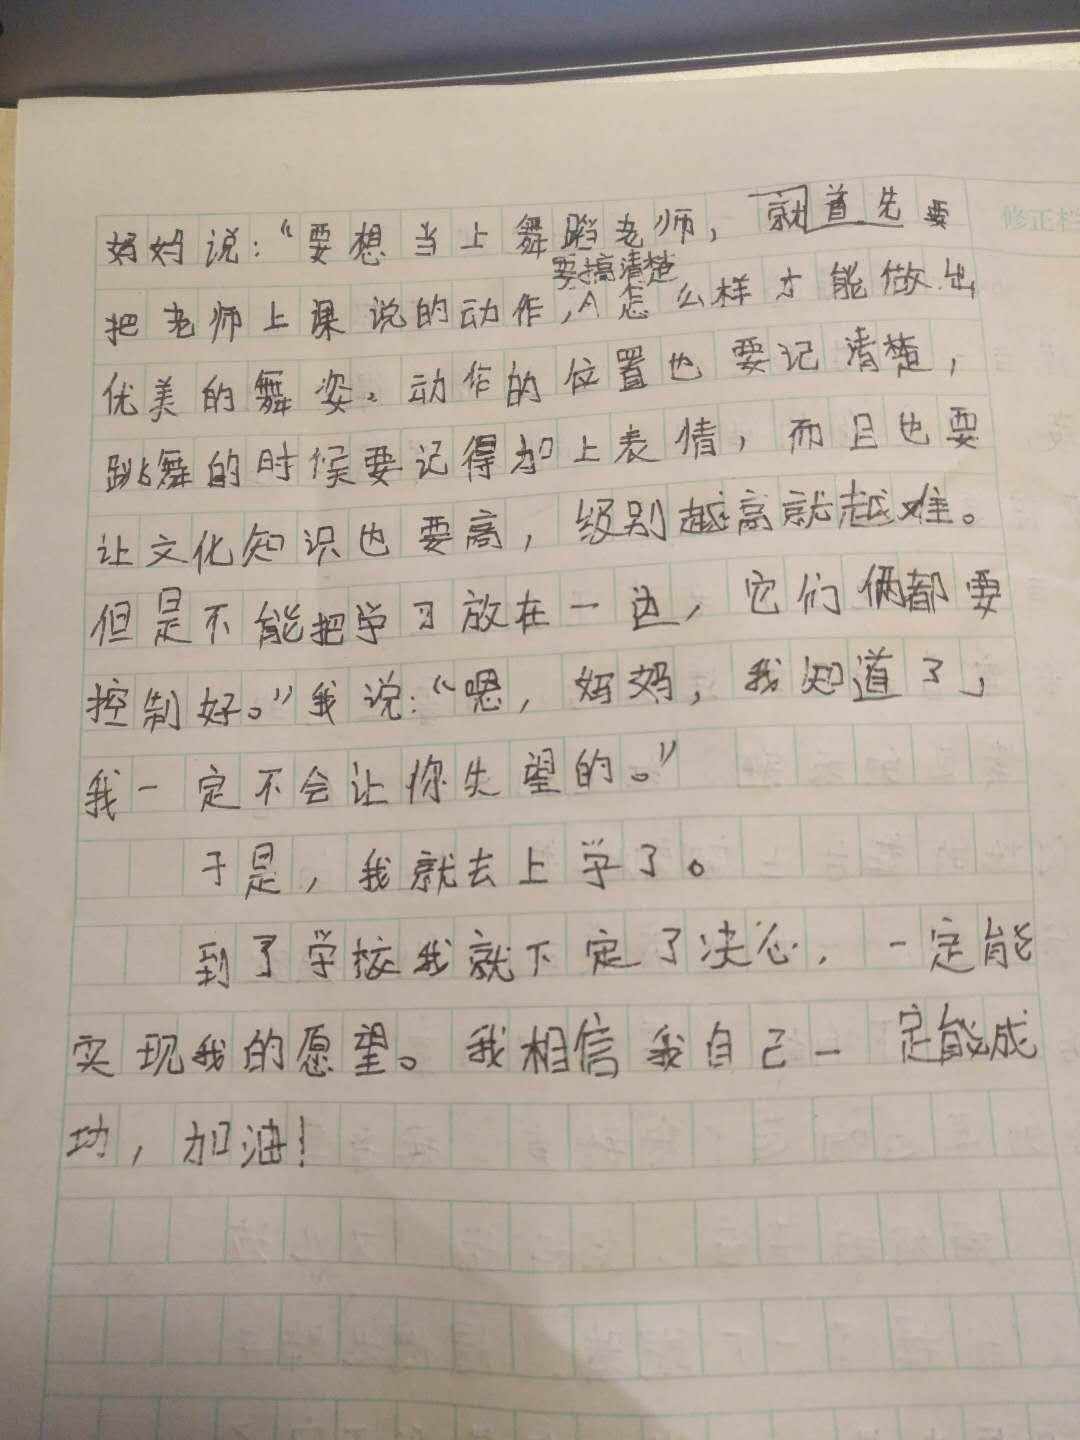 修正栏
妈妈说：“要想当上舞蹈老师，就首先要
要搞清楚
把老师上课说的动作，∧怎么样才能做出
优美的舞姿。动作的位置也要记清楚，
跳舞的时候要记得加上表情，而且也要
让文化知识也要高，级别越高就越难。
但是不能把学习放在一边，它们俩都要
控制好。”我说：“嗯，妈妈，我知道了，
我一定不会让你失望的。”
于是，我就去上学了。
到了学校我就下定了决心，一定能
实现我的愿望。我相信我自己一定能成
功，加油！